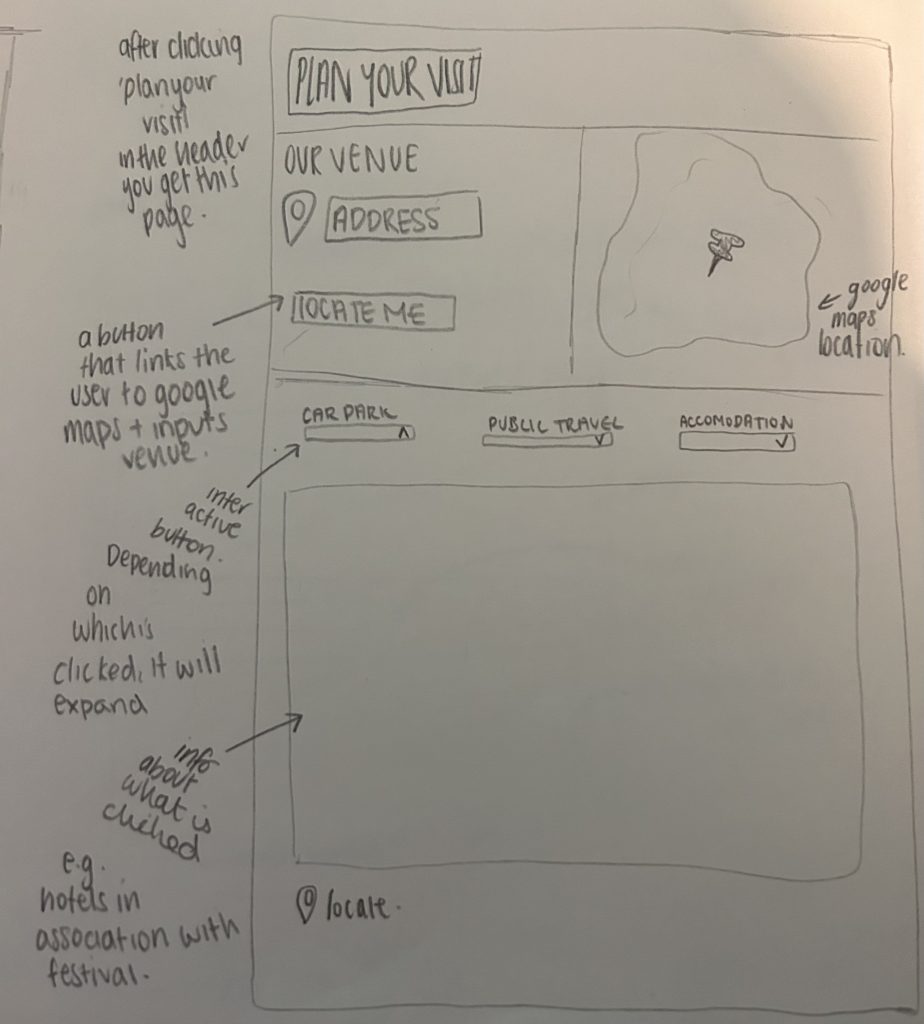 after clicking
'plan your
visit'
in the header
you get this
page.
PLAN YOUR VISIT
OUR VENUE
ADDRESS
LOCATE ME
a button
that links the
user to google
maps + inputs
venue.
← google
maps
location.
CAR PARK
PUBLIC TRAVEL
ACCOMODATION
inter
active
button.
Depending
on
which is
clicked, it will
expand
info
about
what is
clicked
e.g.
hotels in
association with
festival.
locate.